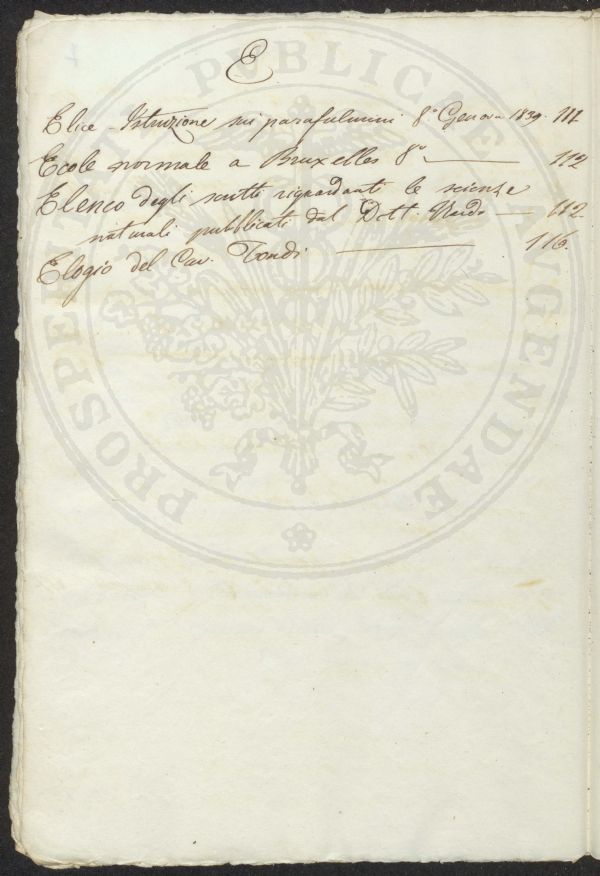 E
Elice - Istruzione sui parafulmini 8° Genova 1839. 111
Ecole normale a Bruxelles 8° 112
Elenco degli scritti riguardanti le scienze
naturali pubblicati dal Dott. Nardo 112.
Elogio del Cav. Tondi 116.
PROSPERITATI PVBLICAE AVGENDAE